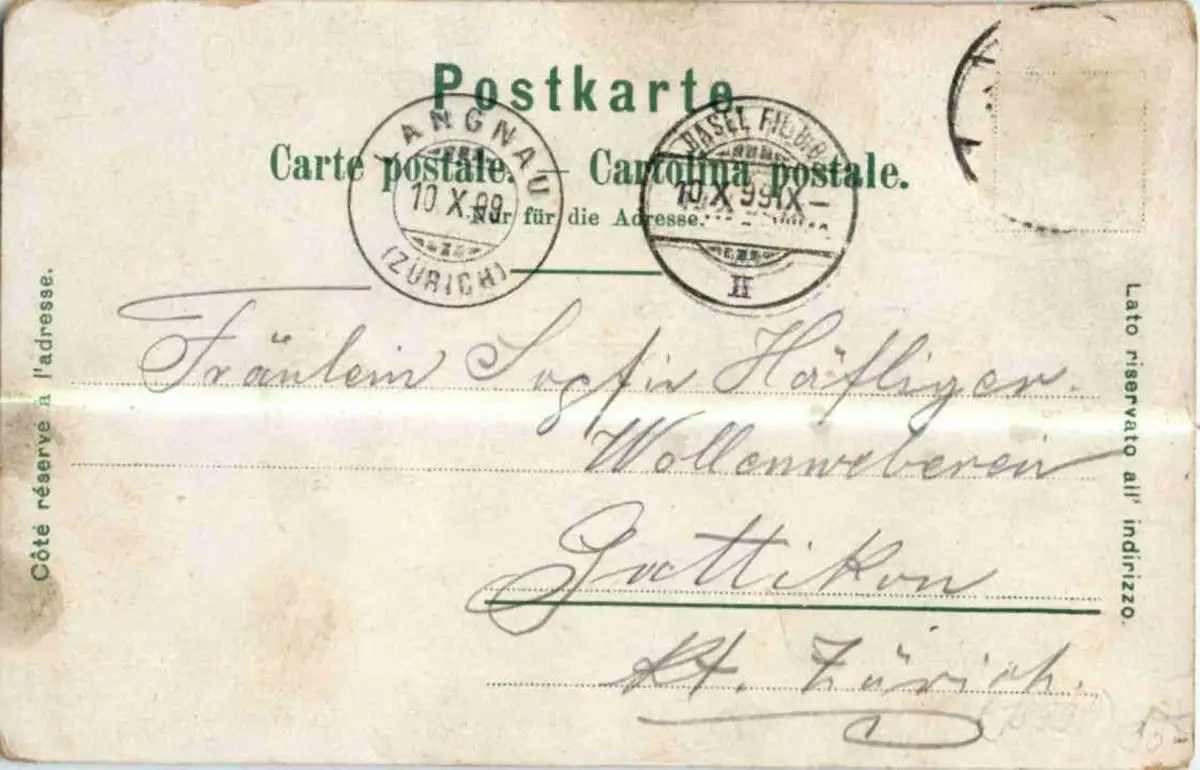 Postkarte.
Carte postale. — Cartolina postale.
Nur für die Adresse.
LANGNAU
10 X.99
(ZÜRICH)
BASEL
10.X.99.IX-
II
Côté réservé a l'adresse.
Lato riservato all' indirizzo.
Fräulein Sophie Häfliger.
Wollenweberei
Gattikon
Kt. Zürich.